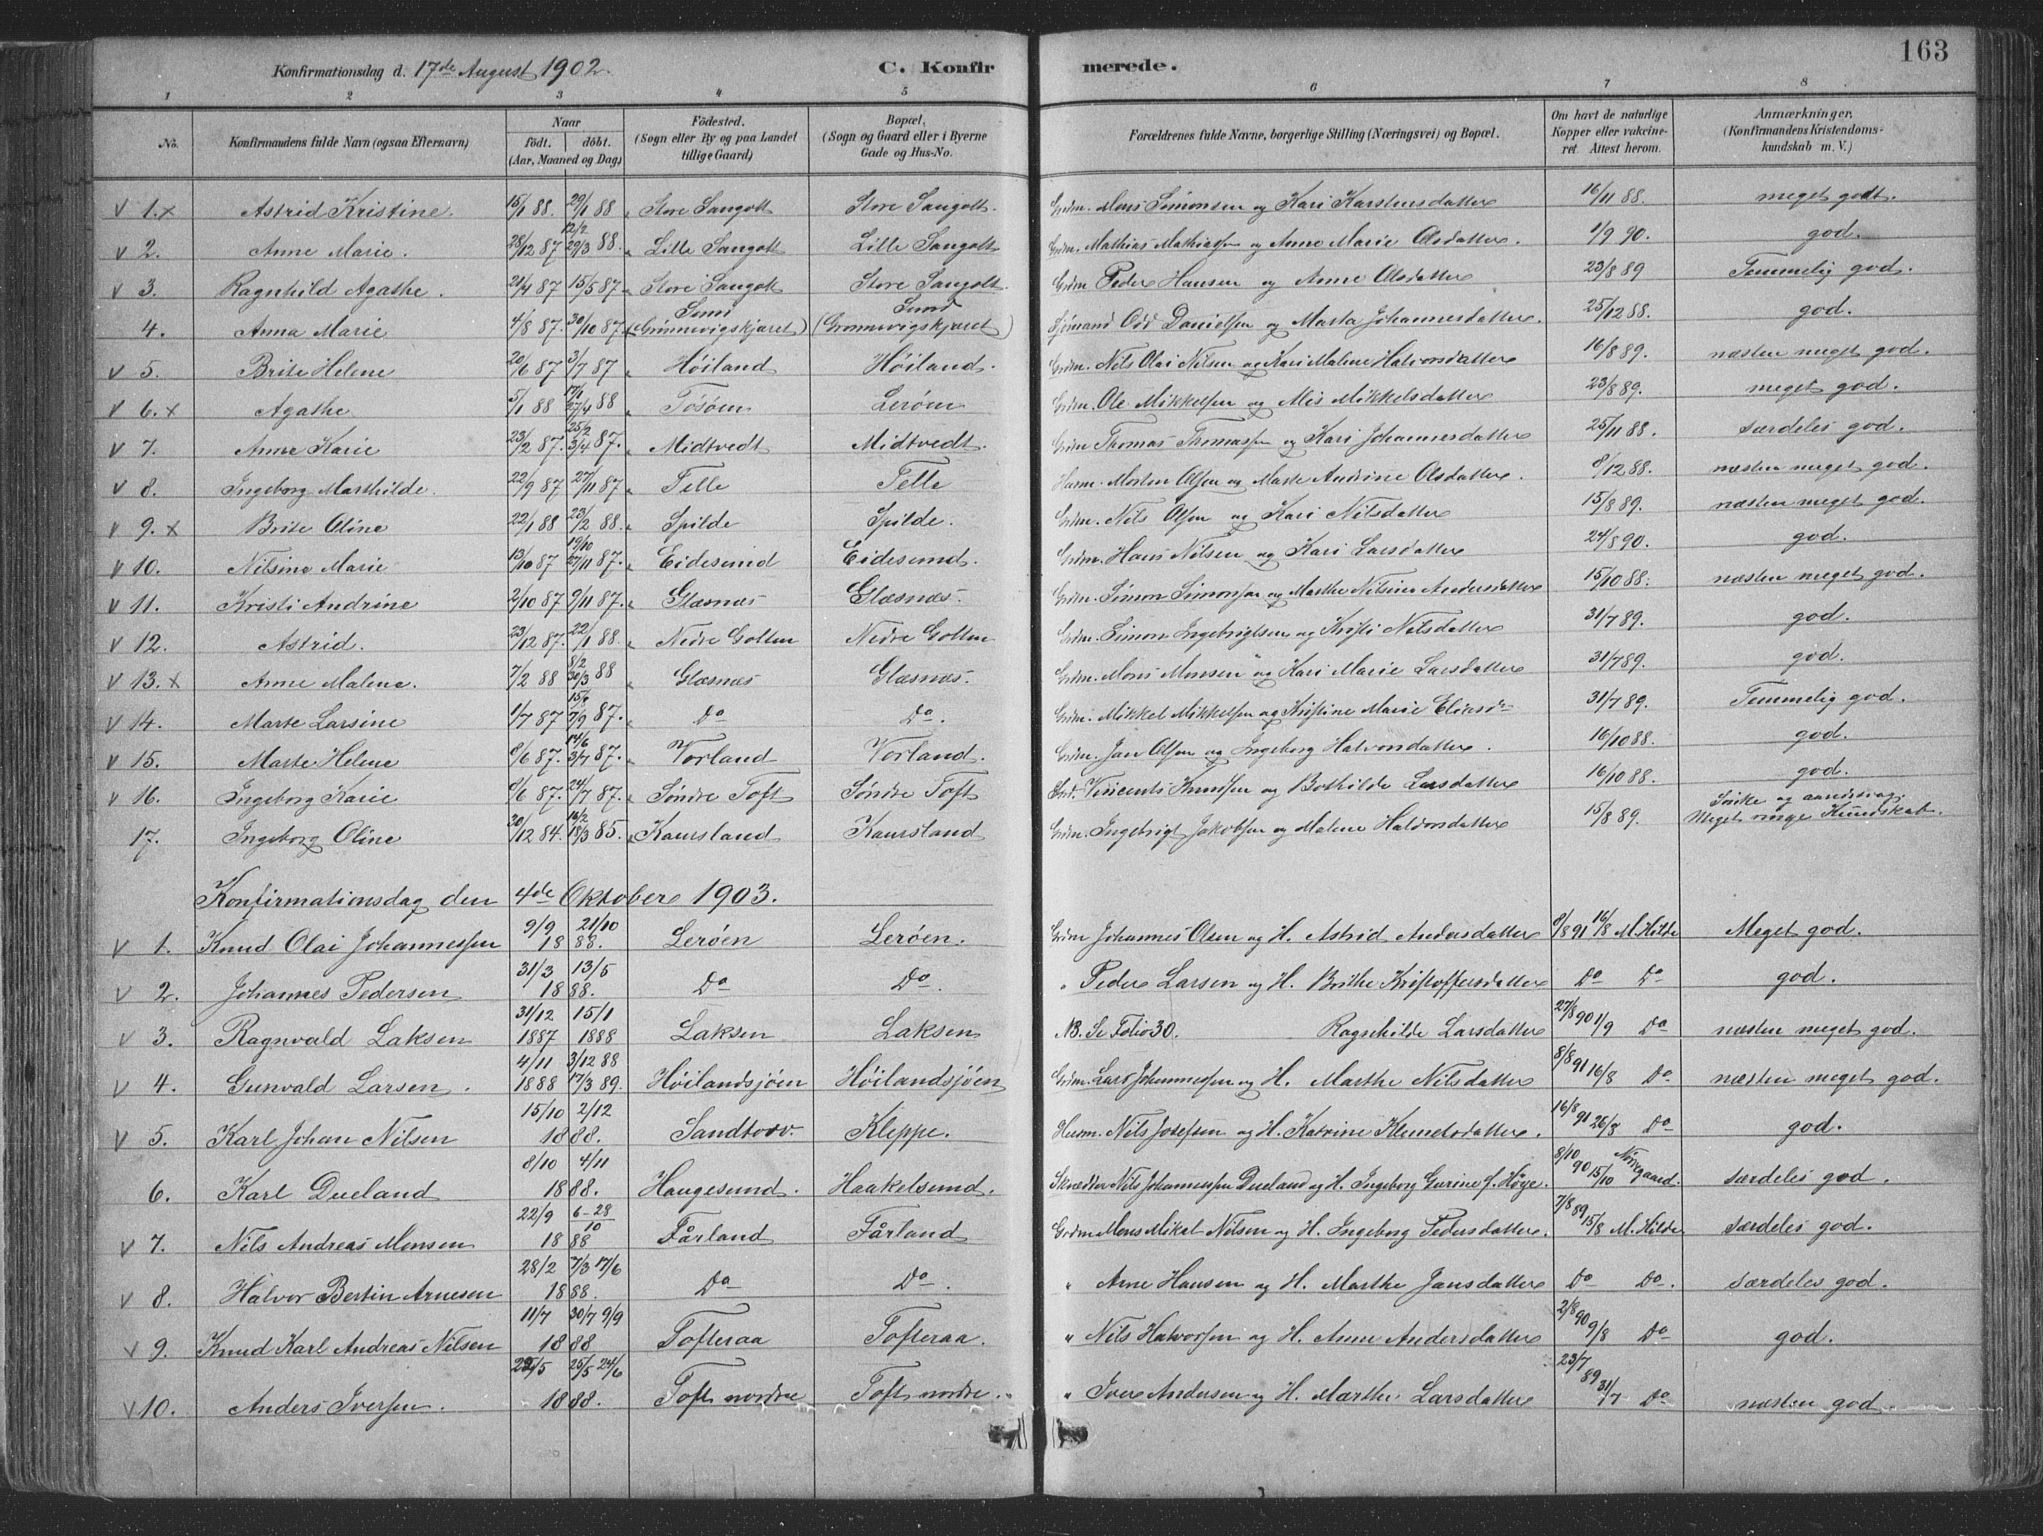 163
Konfirmationsdag d. 17de August 1902. C. Konfir merede.
1 2 3 4 5 6 7 8
No. Konfirmandens fulde Navn (ogsaa Efternavn) Naar født. døbt. (Aar, Maaned og Dag) Fødested. (Sogn eller By og paa Landet tillige Gaard) Bopæl. (Sogn og Gaard eller i Byerne Gade og Hus-No. Forældrenes fulde Navne, borgerlige Stilling (Næringsvei) og Bopæl. Om havt de naturlige Kopper eller vakcineret. Attest herom. Anmærkninger. (Konfirmandens Kristendomskundskab m. V.)
v 1. x Astrid Kristine. 15/1 88. 29/1 88 Store Sangolt Store Sangolt. Grdm. Mons Simonsen og Kari Karstensdatter 16/11 88. meget godt.
v 2. Anne Marie. 28/12 87 12/2 29/3 88. Lille Sangolt Lille Sangolt Grdm. Mathias Mathiassen og Anne Marie Olsdatter. 1/9 90. god.
v 3. Ragnhild Agathe. 21/4 87 15/5 87 Store Sangolt Store Sangolt Grdm. Peder Hansen og Anne Olsdatter 23/8 89 Temmelig god.
4. Anna Marie 4/8 87. 30/10 87. Sund (Grønnevigskjæret) Sund (Grønnevigskjæret) Sjømand Odd Danielsen og Marta Johannesdatter. 25/12 88. god.
v 5. Brite Helene 20/6 87 3/7 87 Høiland Høiland. Grdm. Nils Olai Nilsen og Kari Malene Halvorsdatter 16/8 89. næsten meget god.
v 6. x Agathe 5/1 88 17/1 27/4 88 Tøsøen Lerøen Grdm. Ole Mikkelsen og Mis Mikkelsdatter 23/8 89. meget god.
v 7. Anne Karie 23/2 87. 25/2 3/4 87. Midtvedt Midtvedt. Grdm Thomas Thomassen og Kari Johannesdatter 25/11 88. særdeles god.
v 8. Ingeborg Marthilde. 22/9 87 27/11 87 Telle Telle Husm. Morten Olsen og Marte Andrine Olsdatter. 8/12 88. næsten meget god.
v 9. x Brite Oline 22/1 88 23/2 88. Spilde Spilde. Grdm. Nils Olsen og Kari Nilsdatter 15/8 89. næsten meget god.
v 10. Nilsine Marie 13/10 87 19/10 27/11 87. Eidesund Eidesund. Grdm. Hans Nilsen og Kari Larsdatter 24/8 90. god.
v 11. Kristi Andrine 2/10 87 9/11 87. Glæsnæs Glæsnæs. Grdm. Simon Simonsen og Marthe Nilsine Andersdatter 15/10 88. næsten meget god.
v 12. Astrid. 23/12 87. 22/1 88. Nedre Golten Nedre Golten Grdm. Simon Ingebrigtsen og Kristi Nilsdatter 31/7 89. god.
v 13. x Anne Malene. 7/2 88 8/2 30/3 88 Glæsnæs Glæsnæs. Grdm. Mons Monsen og Kari Marie Larsdatter 31/7 89. god.
v 14. Marte Larsine 1/7 87 7/9 87. Do Do. Grdm. Mikkel Mikkelsen og Kristine Marie Eliasdr 31/7 89. Temmelig god.
v 15. Marte Helene 8/6 87. 14/6 3/7 87. Vorland Vorland. Grdm. Jan Olsen og Ingeborg Halvorsdatter. 16/10 88. god.
v 16. Ingeborg Karie 8/6 87. 24/7 87. Søndre Toft Søndre Toft Vincents Knudsen og Bothilde Larsdatter 16/10 88. god.
17. Ingeborg Oline 20/12 84. 16/2 18/3 85. Kaursland Kaursland Grdm. Ingebrigt Jakobsen og Malene Haldorsdatter 15/8 89. Sinke og aandssvag. Meget ringe Kundskab.
Konfirmationsdag den 4de Oktober 1903.
v 1. Knud Olai Johannessen 9/9 21/10 1888. Lerøen Lerøen. Grdm Johannes Olsen og H. Astrid Andersdatter 8/8 91 16/8 M. Hilde Meget god.
v 2. Johannes Pedersen 31/3 13/5 1888. Do Do. " Peder Larsen og H. Brithe Kristoffersdatter Do Do god.
v 3. Ragnvald Laksen 31/12 1887 15/1 1888 Laksen Laksen NB. Se Folio 30. Ragnhilde Larsdatter 27/8 90 1/9 Do næsten meget god.
v 4. Gunvald Larsen. 4/11 1888 3/12 88 17/3 89. Høilandsjøen Høilandsjøen Grdm. Lars Johannessen og H. Marthe Nilsdatter 8/8 91 16/8 Do næsten meget god.
v 5. Karl Johan Nilsen 15/10 2/12 1888. Sandtorv. Kleppe. Husm. Nils Josefsen og H. Katrine Klemetsdatter. 16/8 91 26/8 Do god.
6. Karl Dueland 8/10 4/11 1888. Haugesund. Haakelsund. Skrædder Nils Johannessen Dueland og H. Ingeborg Gurine f. Høye. 8/10 90 15/10 Nørregaard. særdeles god.
v 7. Nils Andreas Monsen 22/9 6-28/10 1888 Fårland Fårland Grdm Mons Mikal Nilsen og H. Ingeborg Pedersdatter. 7/8 89 15/8 M. Hilde særdeles god.
v 8. Halvor Bertin Arnesen 28/2 7/3 17/6 1888. Do Do. " Arne Hansen og H. Marthe Jansdatter Do Do. særdeles god.
v 9. Knud Karl Andreas Nilsen 11/7 30/7 9/9 1888 Tofteraa Tofteraa. " Nils Halvorsen og H. Anne Andersdatter 2/8 90 9/8 Do god.
v 10. Anders Iversen. 22/5 25/5 24/6 1888. Toft nordre Toft nordre. " Iver Andersen og H. Marthe Larsdatter 23/7 89 31/7 Do næsten god.